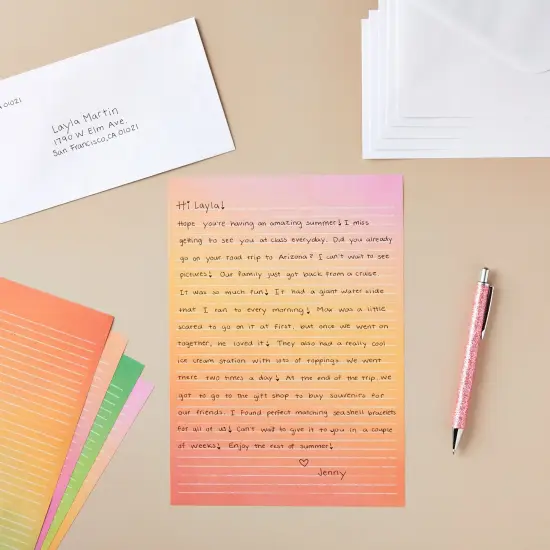 A 01021
Layla Martin
1790 W Elm Ave.
San Francisco, CA 01021
Hi Layla!
Hope you're having an amazing summer! I miss
getting to see you at class everyday. Did you already
go on your road trip to Arizona? I can't wait to see
pictures! Our family just got back from a cruise.
It was so much fun! It had a giant water slide
that I ran to every morning! Max was a little
scared to go on it at first, but once we went on
together, he loved it! They also had a really cool
ice cream station with lots of toppings. We went
there two times a day! At the end of the trip we
got to go to the gift shop to buy souvenirs for
our friends. I found perfect matching seashell bracelets
for all of us! Can't wait to give it to you in a couple
of weeks! Enjoy the rest of summer!
Jenny